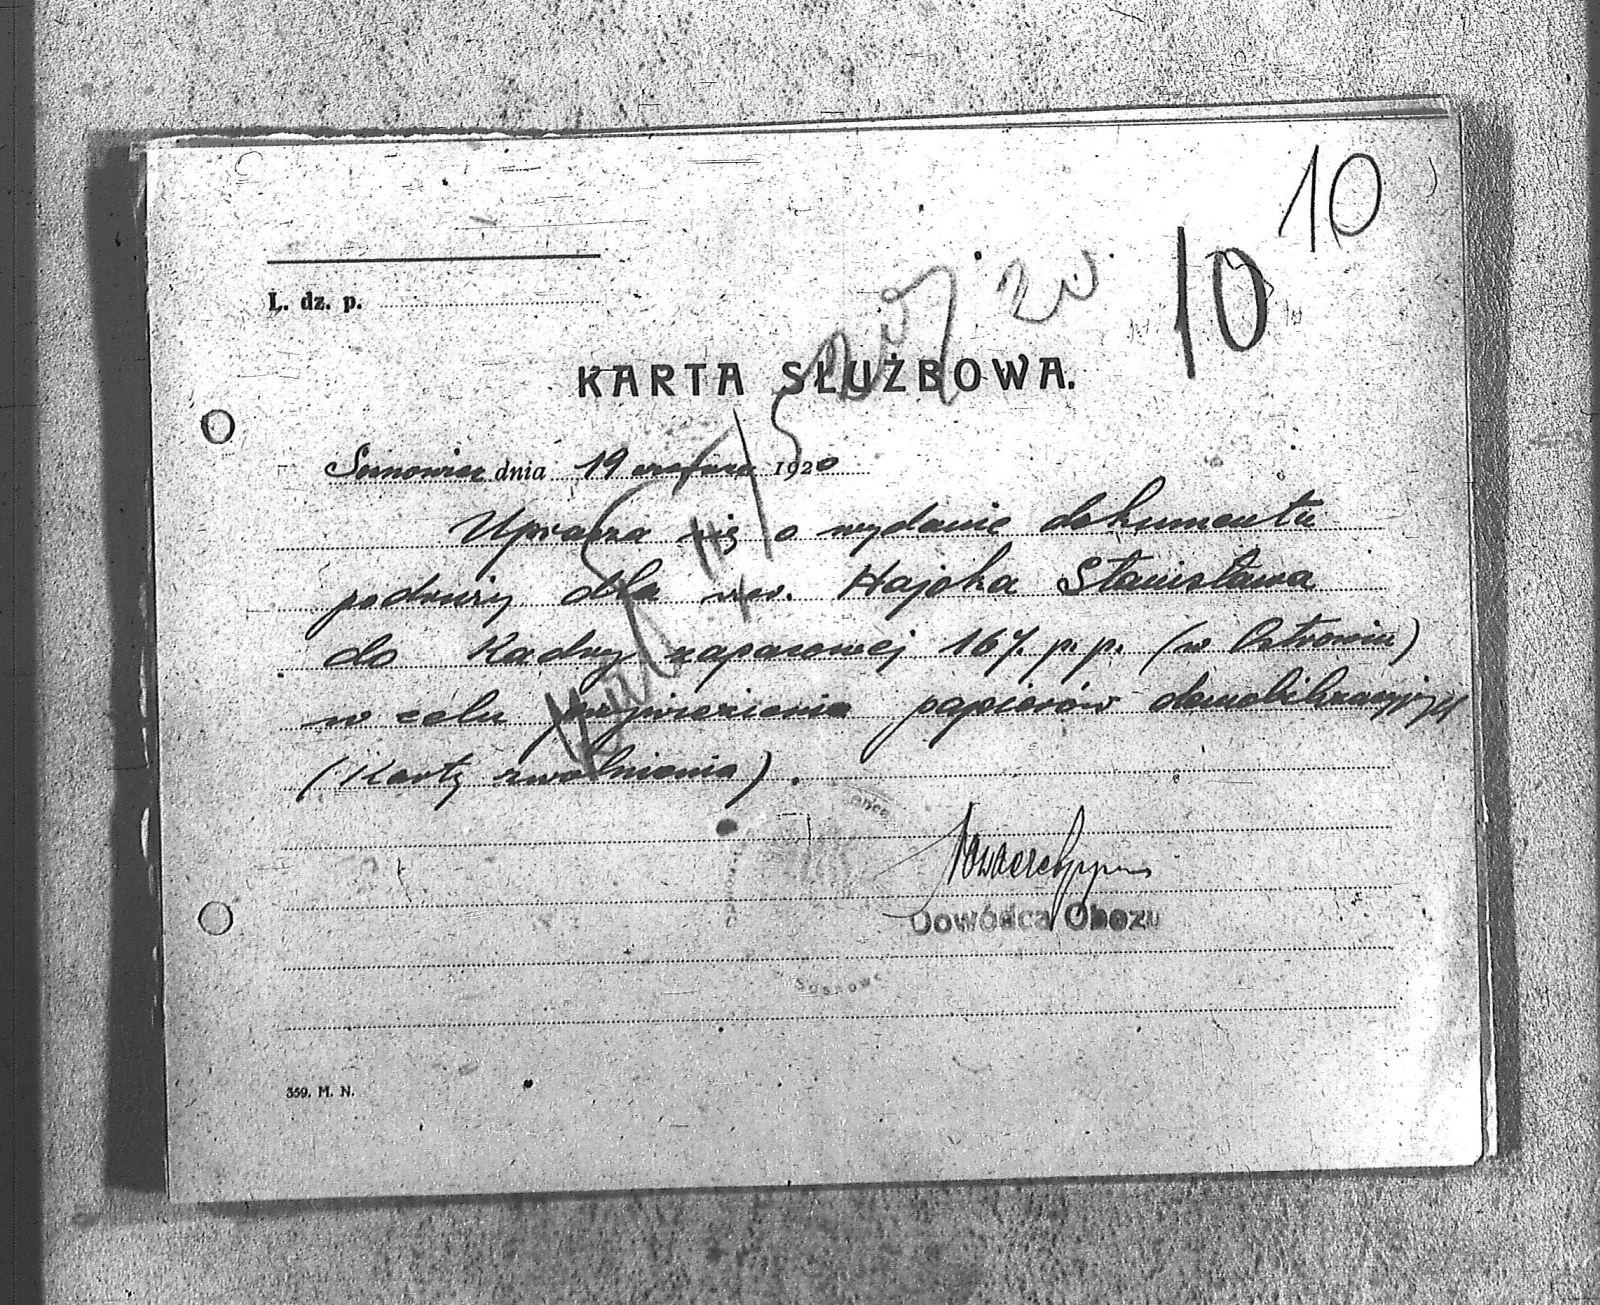 10
10
L. dz. p.
KARTA SŁUŻBOWA.
Sosnowiec dnia 19 września 1920
Uprasza się o wydanie dokumentu
podróży dla szer. Hajoka Stanisława
do Kadry zapasowej 167. p.p. (w Ostrowiu)
w celu papierów demobilizacyjnych
(Karty zwolnienia).
Dowódca Obozu
Sosnowc
359. M. N.